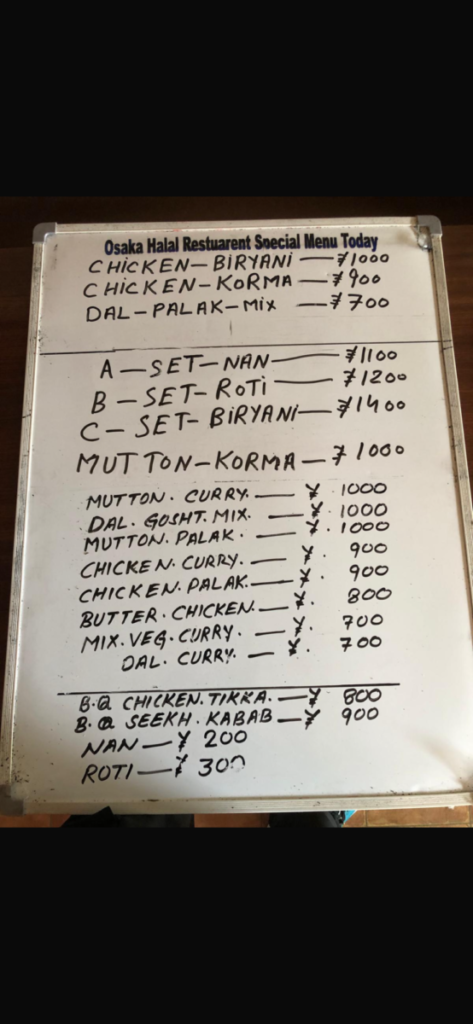 Osaka Halal Restuarent Special Menu Today
CHICKEN-BIRYANI — ¥1000
CHICKEN-KORMA — ¥900
DAL-PALAK-MIX — ¥700
A-SET-NAN — ¥1100
B-SET-ROTI — ¥1200
C-SET-BIRYANI — ¥1400
MUTTON-KORMA — ¥1000
MUTTON. CURRY. — ¥. 1000
DAL. GOSHT. MIX. — ¥. 1000
MUTTON. PALAK. — ¥. 1000
CHICKEN. CURRY. — ¥. 900
CHICKEN. PALAK. — ¥. 900
BUTTER. CHICKEN. — ¥. 800
MIX. VEG. CURRY. — ¥. 700
DAL. CURRY. — ¥. 700
B.Q CHICKEN. TIKKA. — ¥ 800
B.Q SEEKH. KABAB — ¥ 900
NAN — ¥ 200
ROTI — ¥ 300